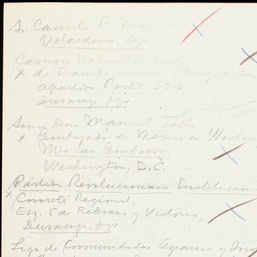 Sr. Camilo R.
Velardeña, Dgo
Camara Nacional de
x de Transformacion
Apartado Postal 224
Durango, Dgo
Senor Don Manuel Tello
x Embajador de Mexico in Washington
Mexican Embassy,
Washington, D.C.
Partido Revolucionario Institucional
x Comite Regional,
Esq. 5 de Febrero y Victoria,
Durango, Dgo
Liga de Comunidades Agrarias y